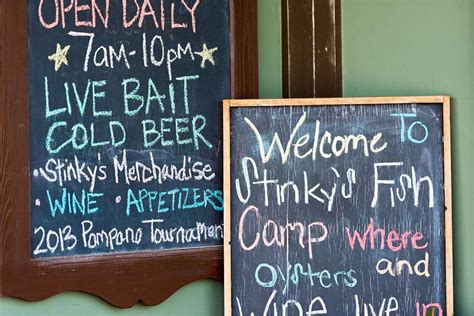 OPEN DAILY
7am-10pm
LIVE BAIT
COLD BEER
• Stinky's Merchandise
• WINE • APPETIZERS
2013 Pompano Tournament
Welcome To
Stinky's Fish
Camp where
oysters and
Wine live in